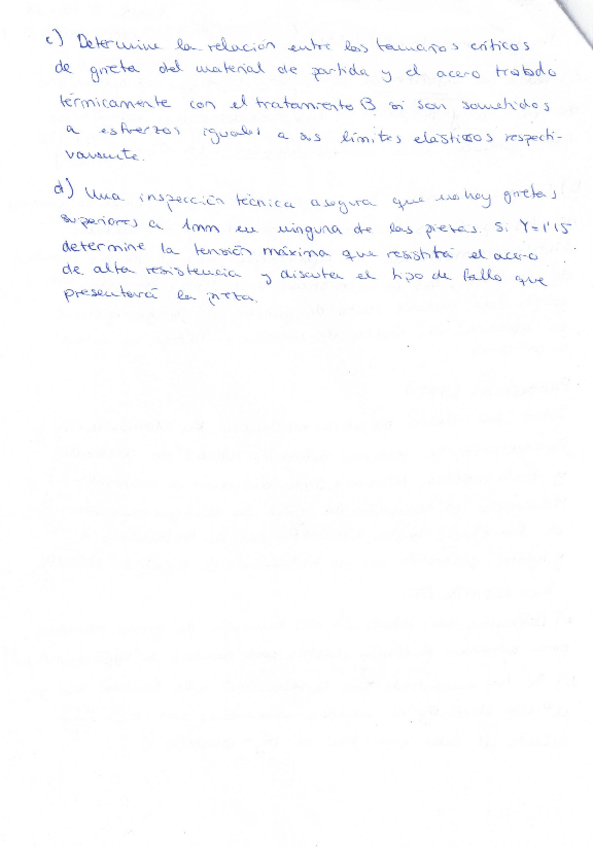 c) Determine la relación entre los tamaños críticos
de grieta del material de partida y el acero tratado
térmicamente con el tratamiento B si son sometidos
a esfuerzos iguales a sus límites elásticos respecti-
vamente.
d) Una inspección técnica asegura que no hay grietas
superiores a 1mm en ninguna de las piezas. Si Y=1'15
determine la tensión máxima que resistirá el acero
de alta resistencia y discuta el tipo de fallo que
presentará la pieza.